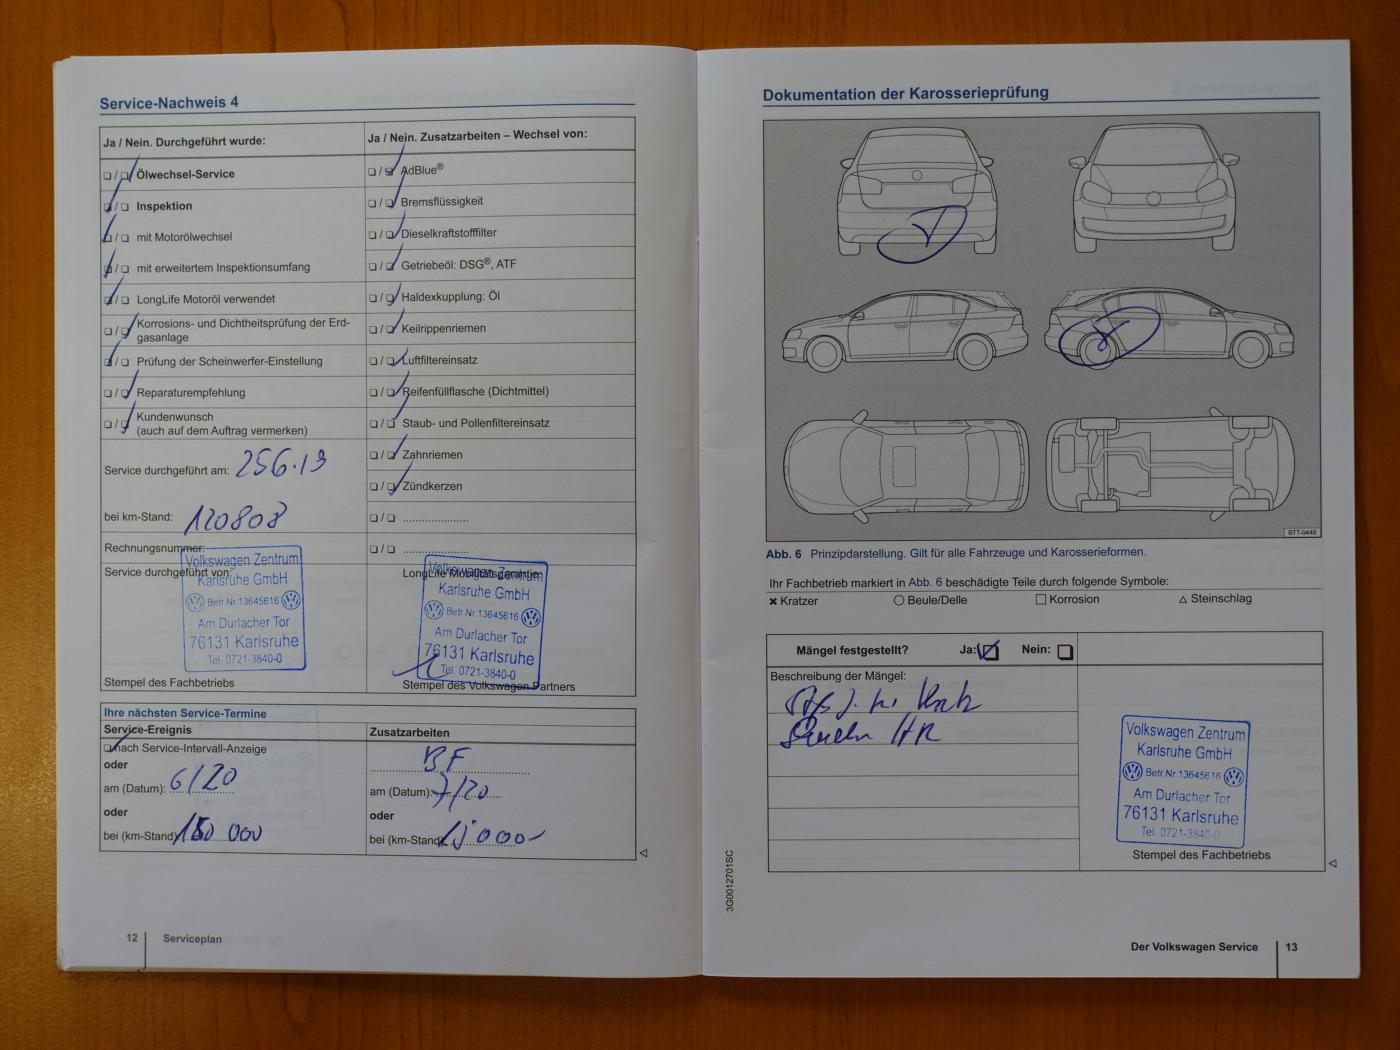 Service-Nachweis 4
Ja / Nein. Durchgeführt wurde:
Ölwechsel-Service
Inspektion
mit Motorölwechsel
mit erweitertem Inspektionsumfang
LongLife Motoröl verwendet
Korrosions- und Dichtheitsprüfung der Erd-
gasanlage
Prüfung der Scheinwerfer-Einstellung
Reparaturempfehlung
Kundenwunsch
(auch auf dem Auftrag vermerken)
Service durchgeführt am: 256.19
bei km-Stand: 120808
Rechnungsnummer:
Service durchgeführt von:
Volkswagen Zentrum
Karlsruhe GmbH
Betr.Nr.13645616
Am Durlacher Tor
76131 Karlsruhe
Tel. 0721-3840-0
Stempel des Fachbetriebs
Ja / Nein. Zusatzarbeiten – Wechsel von:
AdBlue®
Bremsflüssigkeit
Dieselkraftstofffilter
Getriebeöl: DSG®, ATF
Haldexkupplung: Öl
Keilrippenriemen
Luftfiltereinsatz
Reifenfüllflasche (Dichtmittel)
Staub- und Pollenfiltereinsatz
Zahnriemen
Zündkerzen
LongLife Mobilitätsgarantie:
Volkswagen Zentrum
Karlsruhe GmbH
Betr.Nr.13645616
Am Durlacher Tor
76131 Karlsruhe
Tel. 0721-3840-0
Stempel des Volkswagen Partners
Ihre nächsten Service-Termine
Service-Ereignis
nach Service-Intervall-Anzeige
oder
am (Datum): 6/20
oder
bei (km-Stand) 000
Zusatzarbeiten
BF
am (Datum): 7/20
oder
bei (km-Stand)
12 Serviceplan
Dokumentation der Karosserieprüfung
BTT-0449
Abb. 6 Prinzipdarstellung. Gilt für alle Fahrzeuge und Karosserieformen.
Ihr Fachbetrieb markiert in Abb. 6 beschädigte Teile durch folgende Symbole:
Kratzer Beule/Delle Korrosion Steinschlag
Mängel festgestellt? Ja: Nein:
Beschreibung der Mängel:
HR
Volkswagen Zentrum
Karlsruhe GmbH
Betr.Nr.13645616
Am Durlacher Tor
76131 Karlsruhe
Tel. 0721-3840-0
Stempel des Fachbetriebs
3G0012701SC
Der Volkswagen Service 13